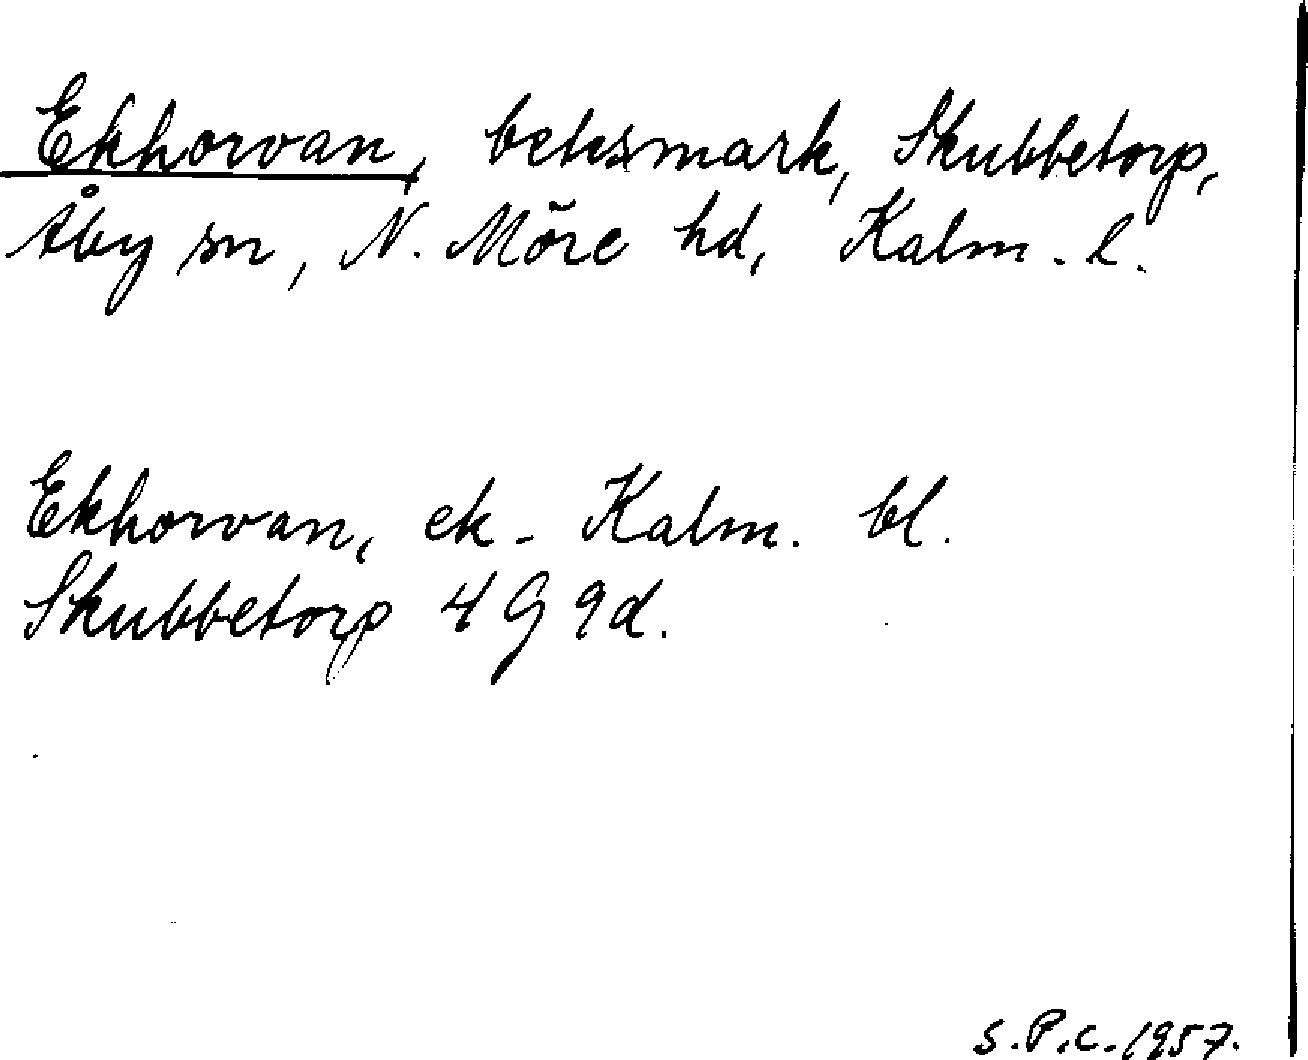 Ekhorvan, betesmark, Skubbetorp,
Åby sn, N. Möre hd, Kalm. l.
Ekhorvan, ek. Kalm. bl.
Skubbetorp 4G 9d.
S.P.C. 1957.